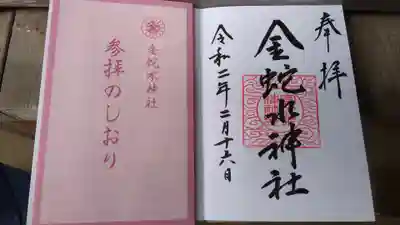 金蛇水神社
参拝のしおり
奉拝
金蛇水神社
令和二年二月十六日